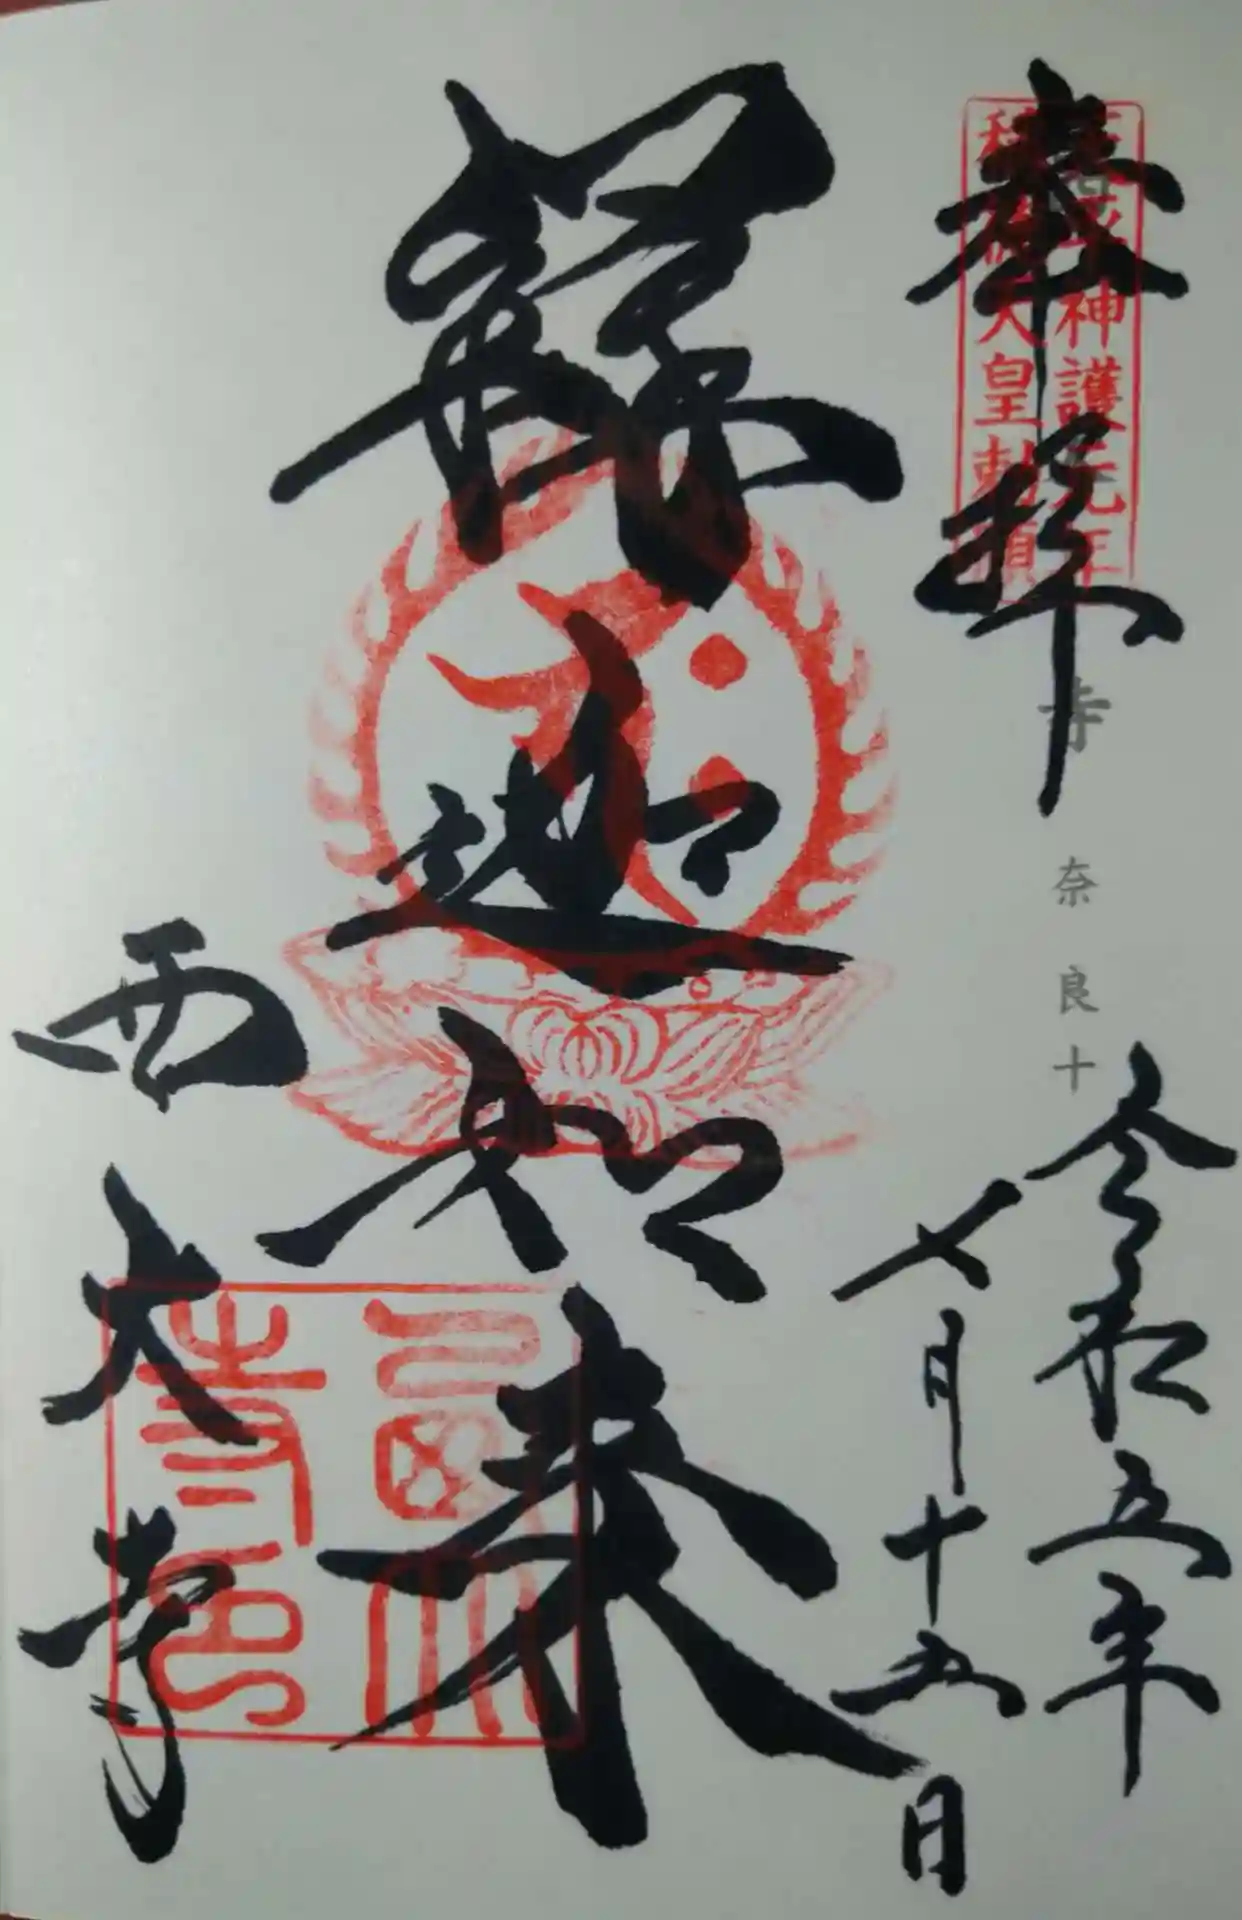 奉拝
天平神護元年
称徳天皇勅願
寺 奈良十
令和五年
七月十五日
釋迦如来
西大寺
西大寺印